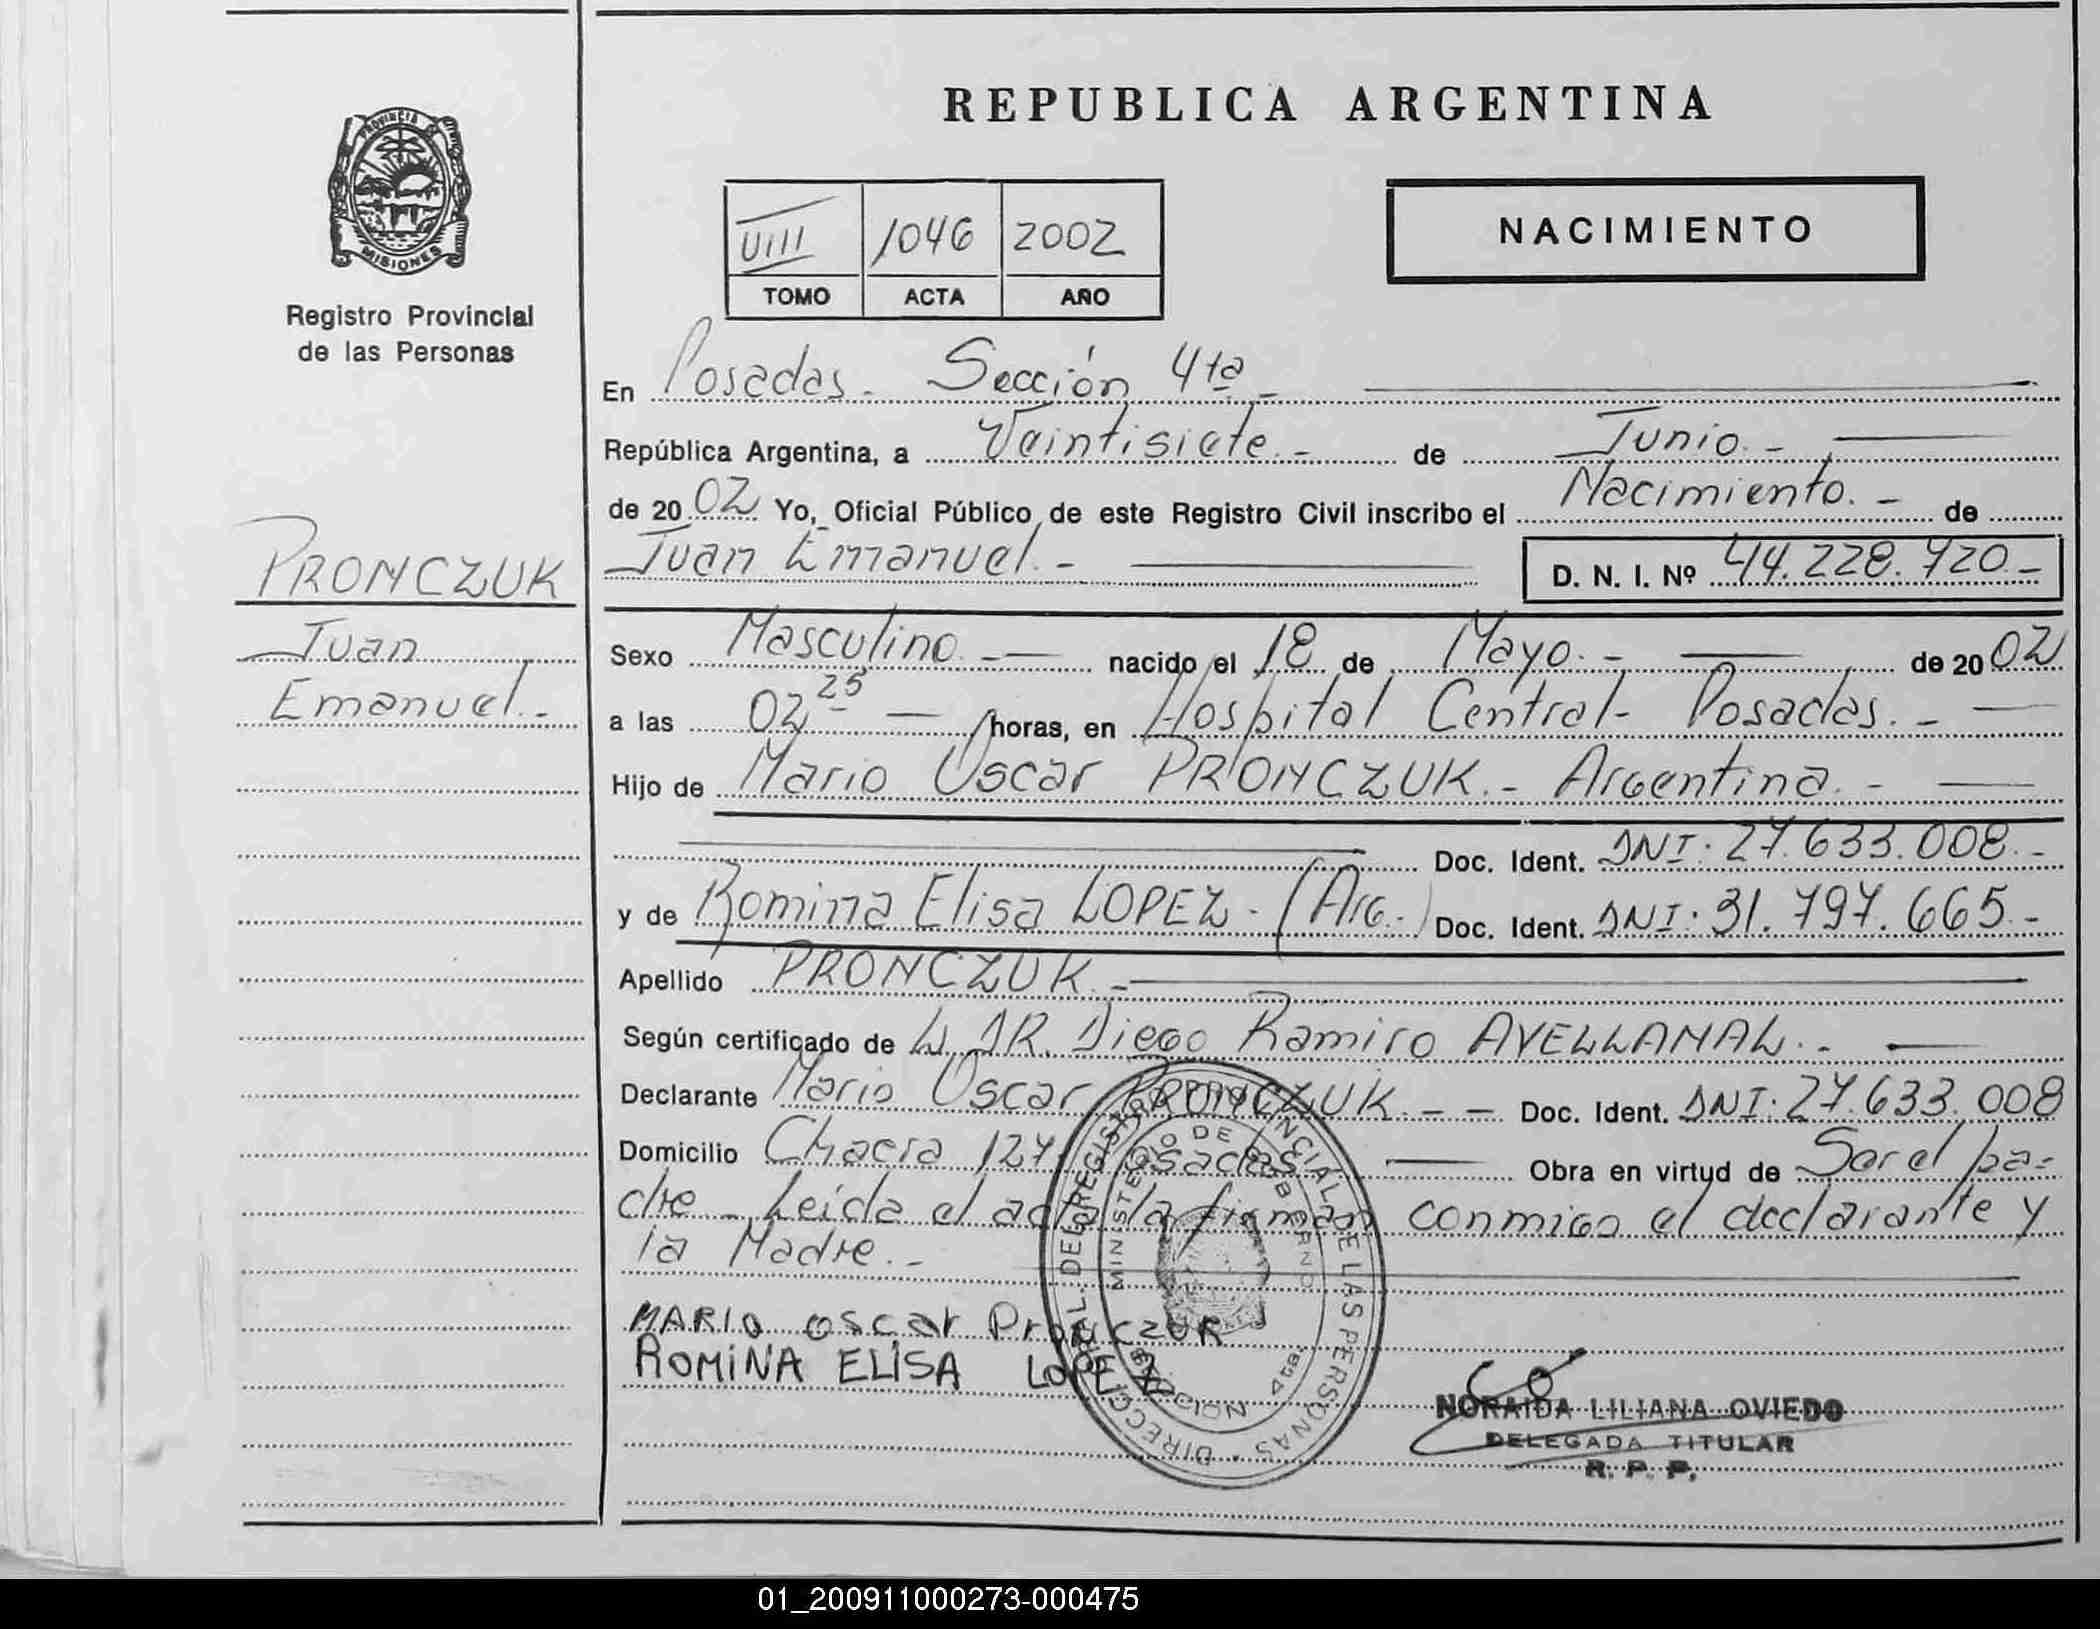 REPUBLICA ARGENTINA
PROVINCIA DE MISIONES
Registro Provincial
de las Personas
VIII 1046 2002
TOMO ACTA AÑO
NACIMIENTO
En Posadas.- Sección 4ta.-
República Argentina, a Veintisiete.- de Junio.-
de 2002 Yo, Oficial Público de este Registro Civil inscribo el Nacimiento.- de
Juan Emanuel.- D. N. I. Nº 44.228.720.-
PRONCZUK
Juan
Emanuel.-
Sexo Masculino.- nacido el 18 de Mayo.- de 2002
a las 02 25 horas, en Hospital Central- Posadas.-
Hijo de Mario Oscar PRONCZUK.- Argentina.-
Doc. Ident. DNI: 27.633.008.-
y de Romina Elisa LOPEZ.- (Arg.-) Doc. Ident. DNI: 31.797.665.-
Apellido PRONCZUK.-
Según certificado de DR. Diego Ramiro AVELLANAL.-
Declarante Mario Oscar PRONCZUK.- - Doc. Ident. DNI: 27.633.008
Domicilio Chacra 127 Posadas Obra en virtud de Ser el pa-
dre.- Leida el acta la firman conmigo el declarante y
la Madre.-
MARIO OSCAR PRONCZUK
ROMINA ELISA LOPEZ
DIRECCION GRAL. DEL REGISTRO PROVINCIAL DE LAS PERSONAS
MINISTERIO DE GOBIERNO
SECCION 4ta.
NORAIDA LILIANA OVIEDO
DELEGADA TITULAR
R. P. P.
01_200911000273-000475